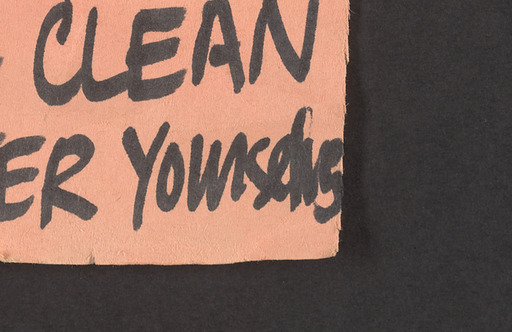 CLEAN
ER Yourselves